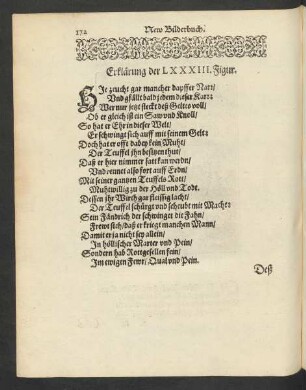 172
New Bilderbuch.
Erklärung der LXXXIII. Figur.
HIe zeucht gar mancher dapffer Narr/
Und gfällt bald jedem dieser Karr:
Wer nur jetzt steckt deß Geltes voll/
Ob er gleich ist ein Saw und Knoll/
So hat er Ehr in dieser Welt/
Er schwingt sich auff mit seinem Gelt:
Doch hat er offt dabey kein Muht/
Der Teuffel ihn besitzen thut/
Daß er hier nimmer satt kan werdn/
Und rennet also fort auff Erdn/
Mit seiner gantzen Teuffels Rott/
Muhtwillig zu der Höll und Todt.
Dessen ihr Wirth gar fleissig lacht/
Der Teuffel schürgt und scheubt mit Macht:
Sein Fändrich der schwinget die Fahn/
Frewt sich/ daß er kriegt manchen Mann/
Damit er ja nicht sey allein/
In höllischer Marter und Pein/
Sondern hab Rottgesellen sein/
Im ewigen Fewr/ Qual und Pein.
Deß